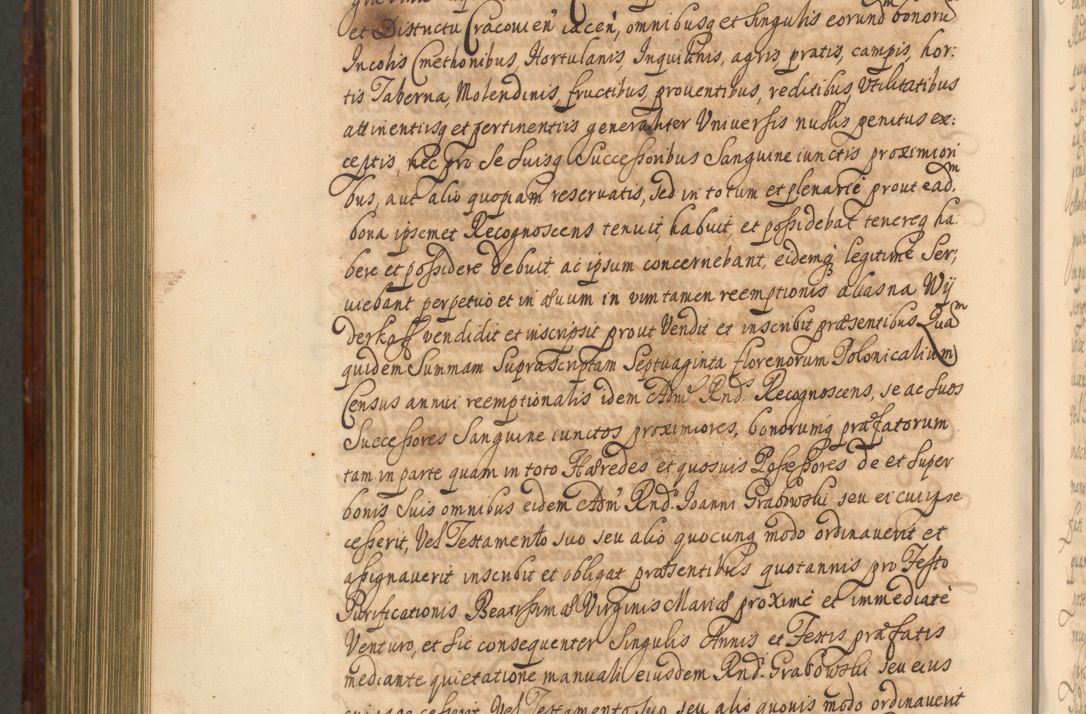 et Districtu Cracovien̄ iacen̄, omnibusq̨ et singulis eorund bonorū
Incolis Cmethonibus, Hortulanis, Inquilinis, agris, pratis, campis, hor:
tis Taberna, Molendinis, fructibus, proventibus, reditibus, Utilitatibus
attinentiisq̨ et pertinentiis generaliter Universis nullis penitus ex:
ceptis, nec pro se suisq̨ Successoribus Sanguine iunctis proximiori
bus, aut alio quopiam reservatis, sed in totum et plenarie prout eadm̄.
bona ipsemet Recognoscens tenuit, habuit et possidebat tenereq̨ ha
bere et possidere debuit ac ipsum concernebant, eidemq̨ legitime Ser,
viebant perpetuo et in ævum in vim tamen reemptionis alias na Wÿ
derkaff vendidit et inscripsit prout Vendit et inscribit præsentibus Quam
quidem Summam Suprascriptam Septuaginta florenorum Polonicalium
Census annui reemptionalis idem Adm̄ Rnd. Recognoscens, se ac suos
Successores Sanguine iunctos proximiores, bonorumq̨ præfatorum
tam in parte quam in toto Hæredes et quosvis Possessores de et super
bonis suis omnibus eidem Adm̄ Rnd. Joanni Grabowski seu ei cui ipse
cesserit, Vel Testamento suo seu alio quocunq̨ modo ordinaverit et
assignaverit inscribit et obligat præsentibus quotannis pro Festo
Purificationis Beatissimæ Virginis Mariæ proximè et immediatè
Venturo, et sic consequenter Singulis Annis et Festis præfatis
mediante quietatione manuali eiusdem Rnd. Grabowski seu eius
cui ipse cesserit, Vel Testamento suo seu alio quovis modo ordinaverit